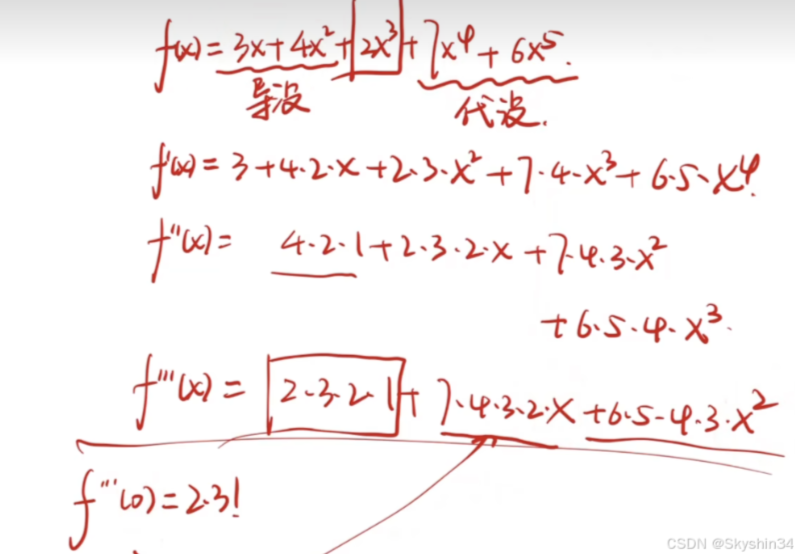 f(x) = 3x + 4x² + 2x³ + 7x⁴ + 6x⁵.
导没 代没.
f'(x) = 3 + 4·2·x + 2·3·x² + 7·4·x³ + 6·5·x⁴.
f''(x) = 4·2·1 + 2·3·2·x + 7·4·3·x²
+ 6·5·4·x³.
f'''(x) = 2·3·2·1 + 7·4·3·2·x + 6·5·4·3·x²
f'''(0) = 2·3!
CSDN @Skyshin34